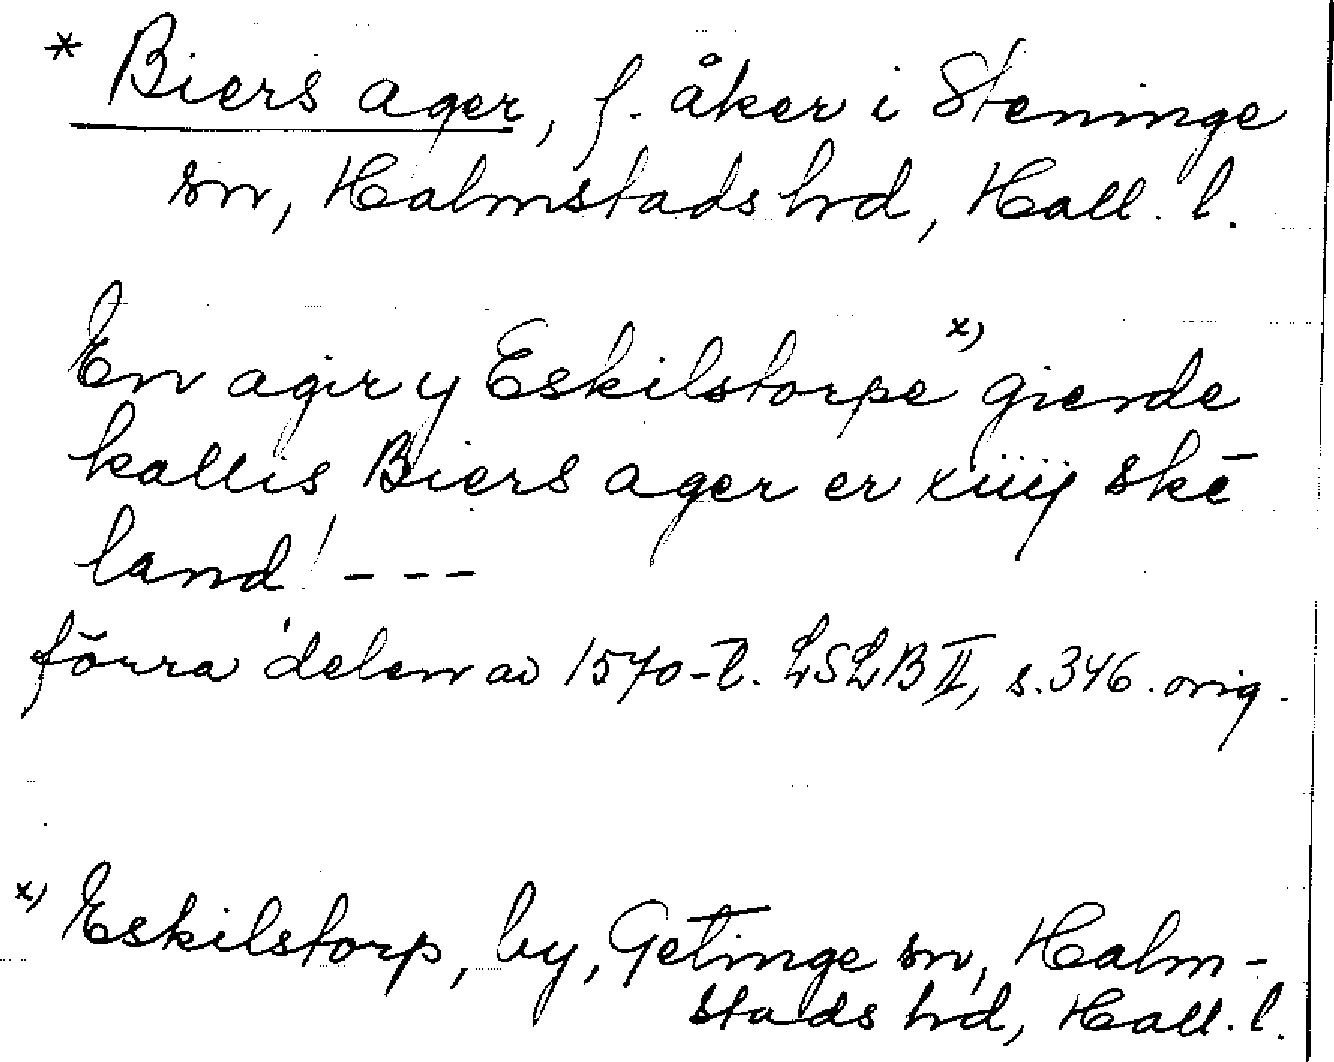 * Biers ager, f. åker i Steninge
sn, Halmstads hrd, Hall. l.
En agir y Eskilstorpe x) gierde
kallis Biers ager er xiiij skē
land! - - -
förra delen av 1570-t. LSLB II, s. 346. orig.
x) Eskilstorp, by, Getinge sn, Halm-
stads hrd, Hall. l.